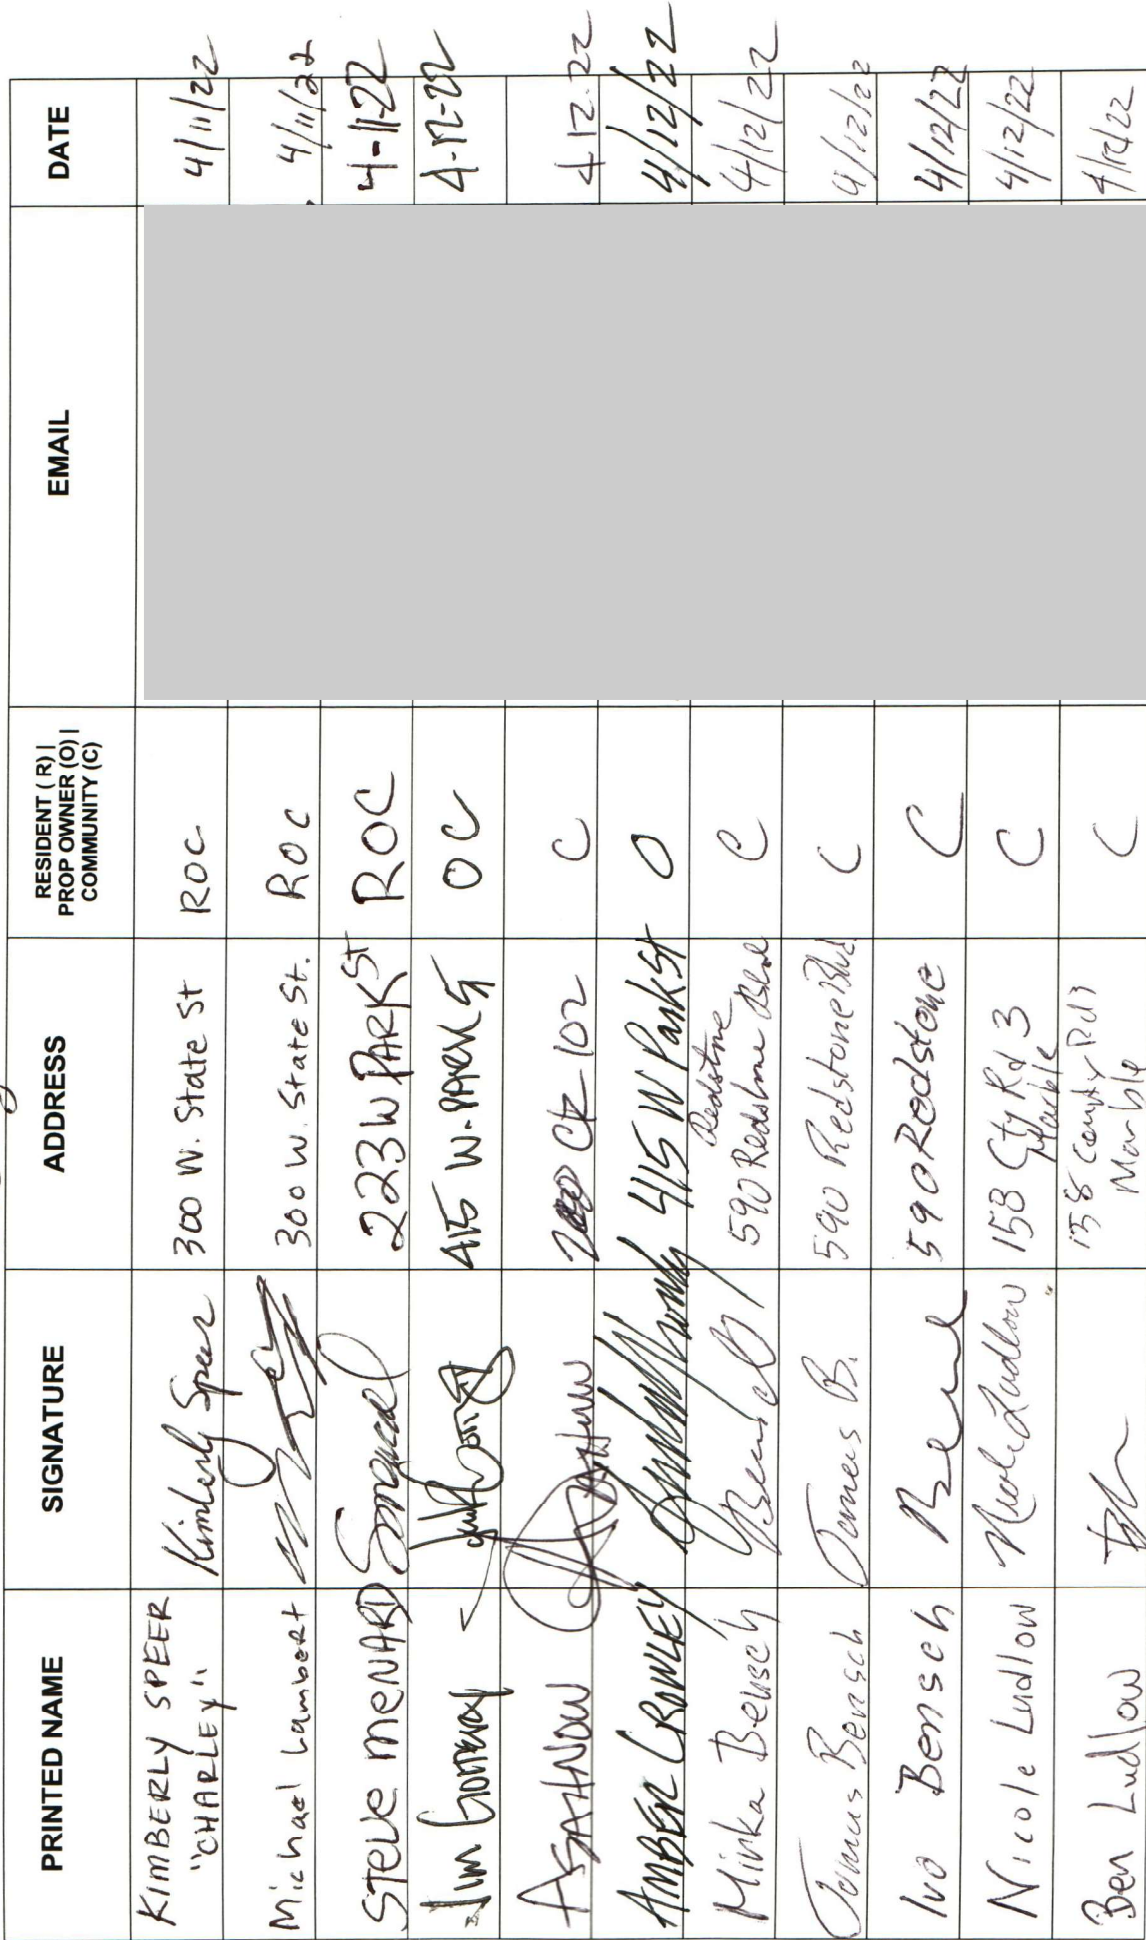 PRINTED NAME SIGNATURE ADDRESS RESIDENT ( R) | PROP OWNER (O) | COMMUNITY (C) EMAIL DATE
KIMBERLY SPEER "CHARLEY" Kimberly Speer 300 W. State St ROC 4/11/22
Michael Lambert 300 W. State St. ROC 4/11/22
STEVE MENARD 223 W PARK ST ROC 4-11-22
Jim 415 W. PARK ST OC 4-12-22
C 4 12-22
AMBER CROWLEY 415 W Park St O 4/12/22
Minka Bensch 590 Redstone Blvd Redstone C 4/12/22
Bensch B. 590 Redstone Blvd C 4/12/22
Ivo Bensch 590 Redstone C 4/12/22
Nicole Ludlow Nicole Ludlow 158 Cty Rd 3 Marble C 4/12/22
Ben Ludlow 158 County Rd 3 Marble C 4/12/22